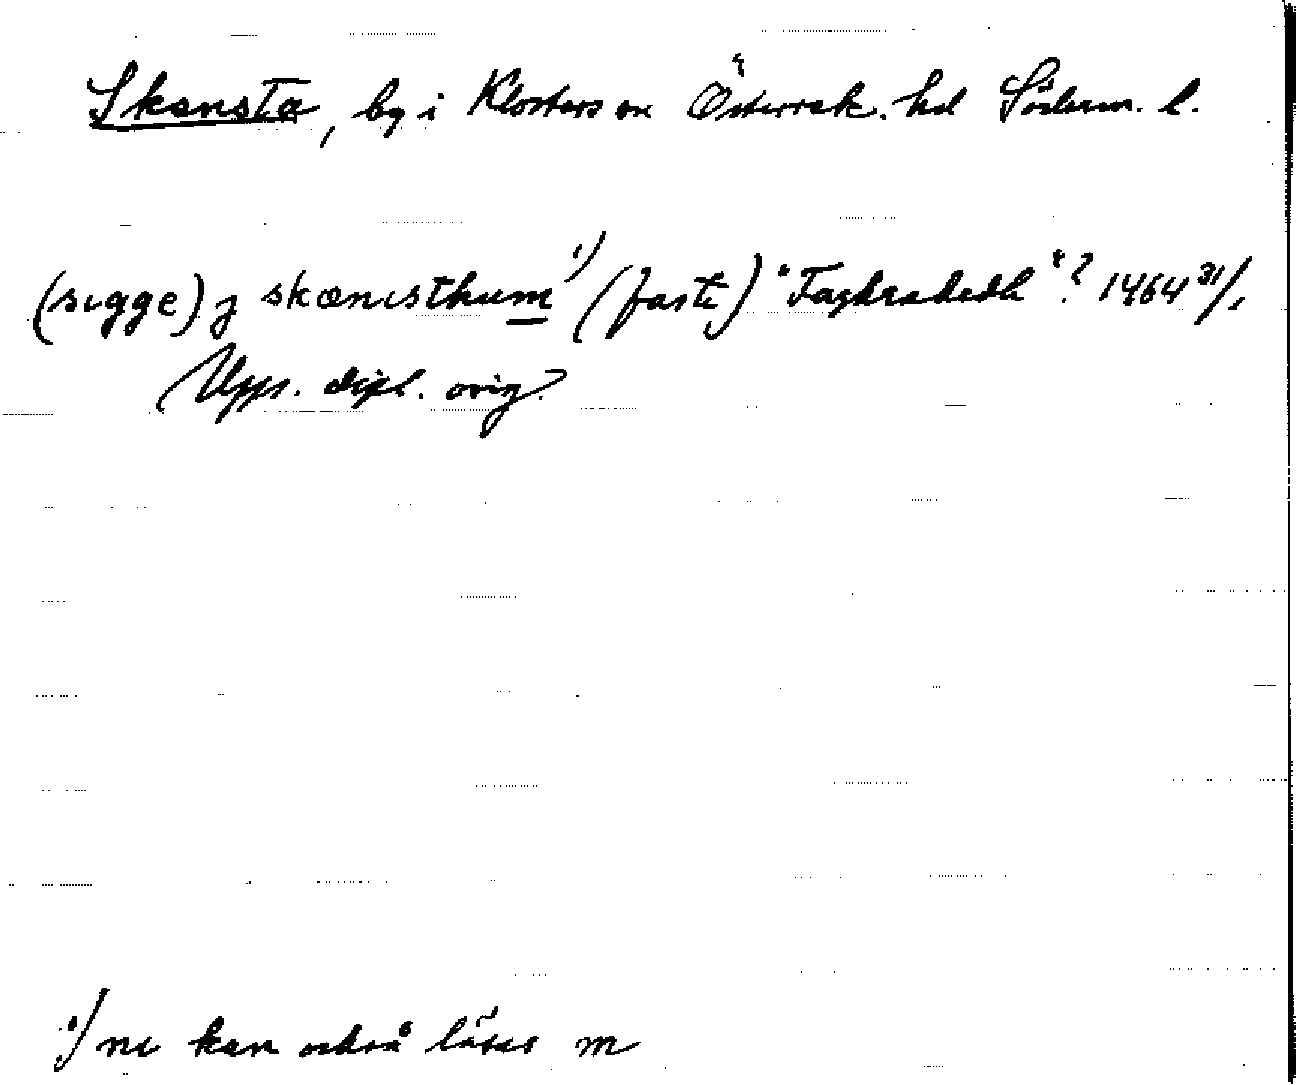 Skensta, by i Klosters sn Österrek. hd Söderm. l.
(sigge) j skænisthum ¹⁾ (faste) "Faghradedh"? 1464 31/1
(Upps. dipl. orig.)
¹⁾ ni kan också läsas m